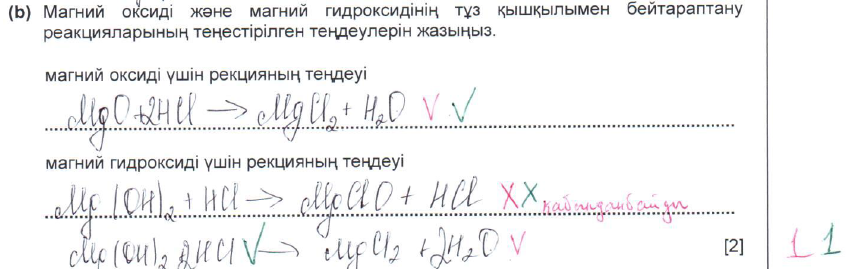 (b) Магний оксиді және магний гидроксидінің тұз қышқылымен бейтараптану
реакцияларының теңестірілген теңдеулерін жазыңыз.
магний оксиді үшін рекцияның теңдеуі
MgO+2HCl → MgCl₂ + H₂O V V
магний гидроксиді үшін рекцияның теңдеуі
Mg(OH)₂ + HCl → MgClO + HCl X X қабылданбайды
Mg(OH)₂ 2HCl V → MgCl₂ + 2H₂O V [2] 1 1